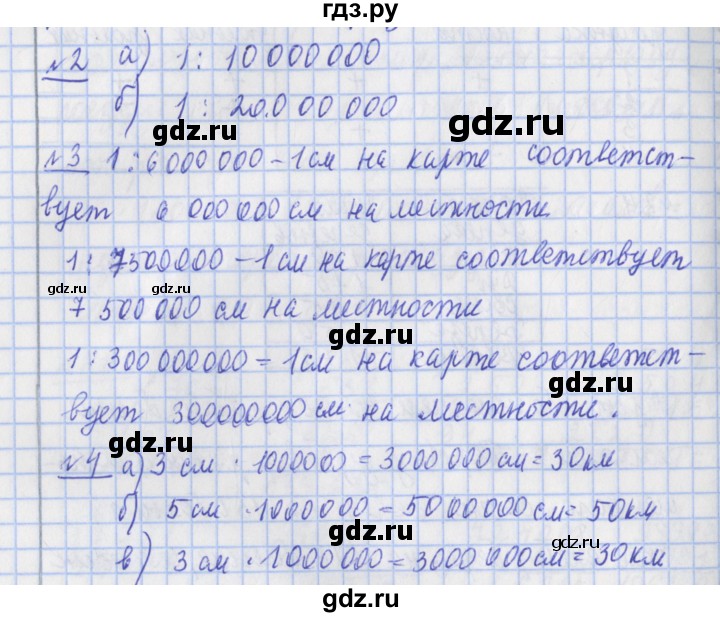 гдз.ру
№2 а) 1 : 10 000 000
б) 1 : 20.000 000
gdz.ru
gdz.ru
№3 1 : 6 000 000 – 1 см на карте соответст-
вует 6 000 000 см на местности
1 : 7500000 – 1 см на карте соответствует
gdz.ru
gdz.ru
7 500 000 см на местности
gdz.ru
1 : 300 000 000 = 1 см на карте соответст-
gdz.ru
вует 300000000 см на местности.
gdz.ru
№4 а) 3 см · 1000000 = 3000 000 см = 30 км
б) 5 см · 1000000 = 5000000 см = 50 км
gdz.ru
в) 3 см · 1 000 000 = 3000 000 см = 30 км
gdz.ru
gdz.ru